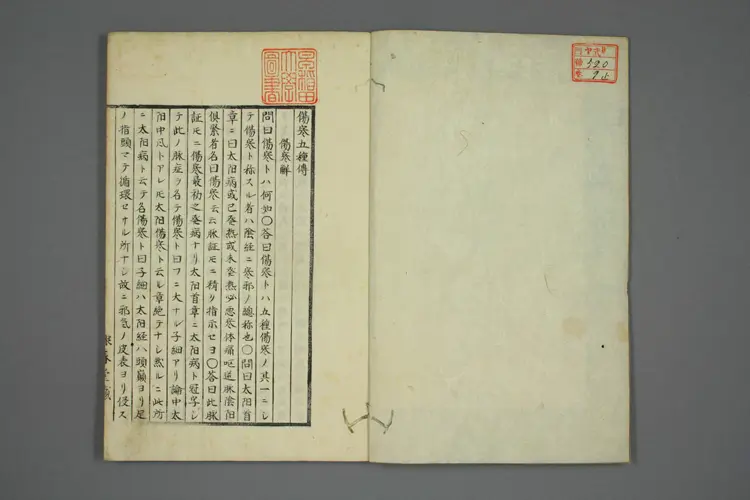 傷寒五種傳
傷寒解
問曰傷寒トハ何如○答曰傷寒トハ五種傷寒ノ其一ニシ
テ傷寒ト称スル者ハ陰経ニ寒邪ノ總称也○問曰太阳首
章ニ曰太阳病或已發熱或未發熱必悪寒体痛呕逆脉陰阳
俱緊者名曰傷寒云云脉証ニ精リ指示セヨ○答曰此脉
証ニ傷寒最初之病ナリ太阳首章ニ太阳病ト冠字シ
テ此ノ脉症ヲ名テ傷寒ト曰フニ大ナル子細アリ論中太
阳中风トアレ太阳傷寒ト云ル章絶テナシ然ルニ此所
ニ太阳病ト云テ名傷寒ト曰子細ハ太阳経ハ頭巓ヨリ足
ノ指頭マテ循環セサル所ナシ故ニ邪氣ノ皮表ヨリ侵ス
早稲田大學圖書
120